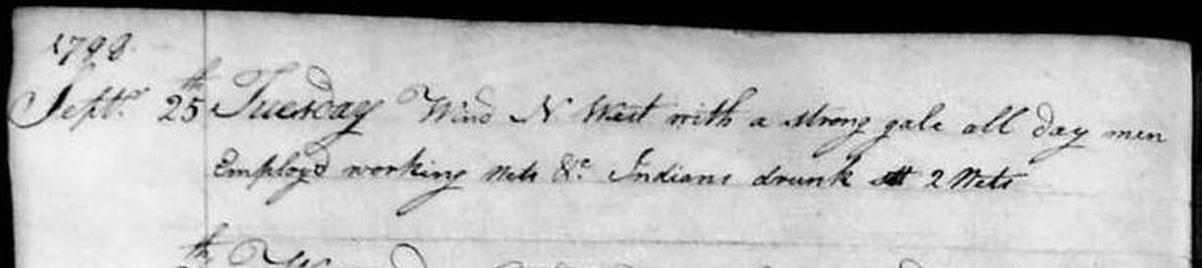 1798
Septr. 25th Tuesday Wind N West with a strong gale all day men
Employd working Nets &c Indians drunk sett 2 Nets
th